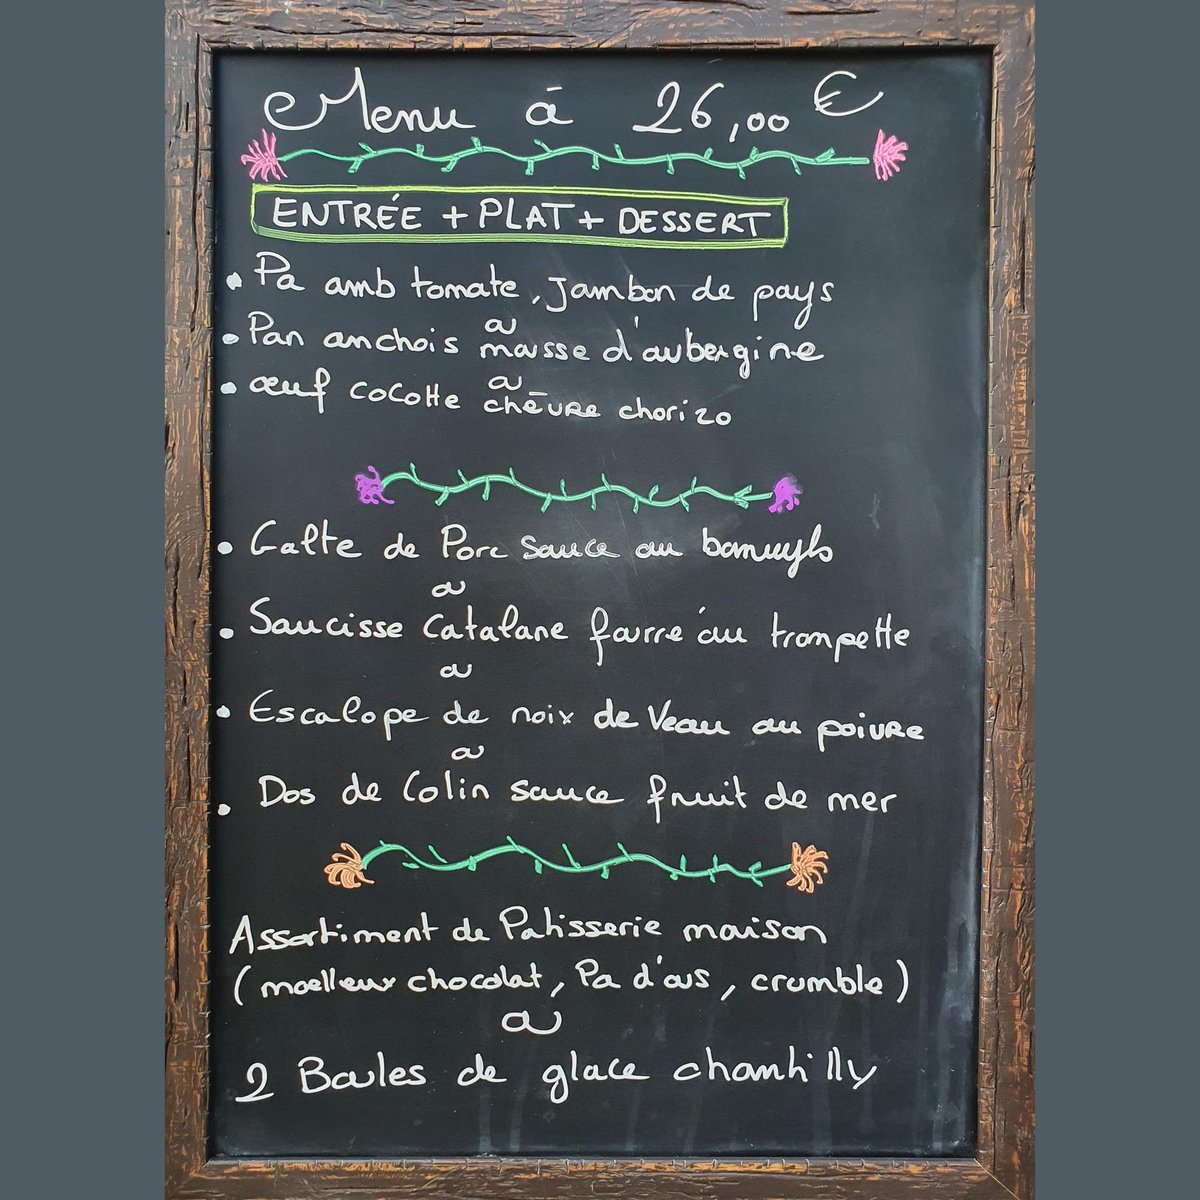 Menu à 26,00 €
ENTRÉE + PLAT + DESSERT
• Pa amb tomate, jambon de pays
ou
• Pan anchois mousse d'aubergine
ou
• œuf cocotte chèvre chorizo
• Galte de Porc sauce au banuyls
ou
• Saucisse Catalane fourré au trompette
ou
• Escalope de noix de Veau au poivre
ou
• Dos de Colin sauce fruit de mer
Assortiment de Patisserie maison
(moelleux chocolat, Pa d'ous, crumble)
ou
2 Boules de glace chantilly